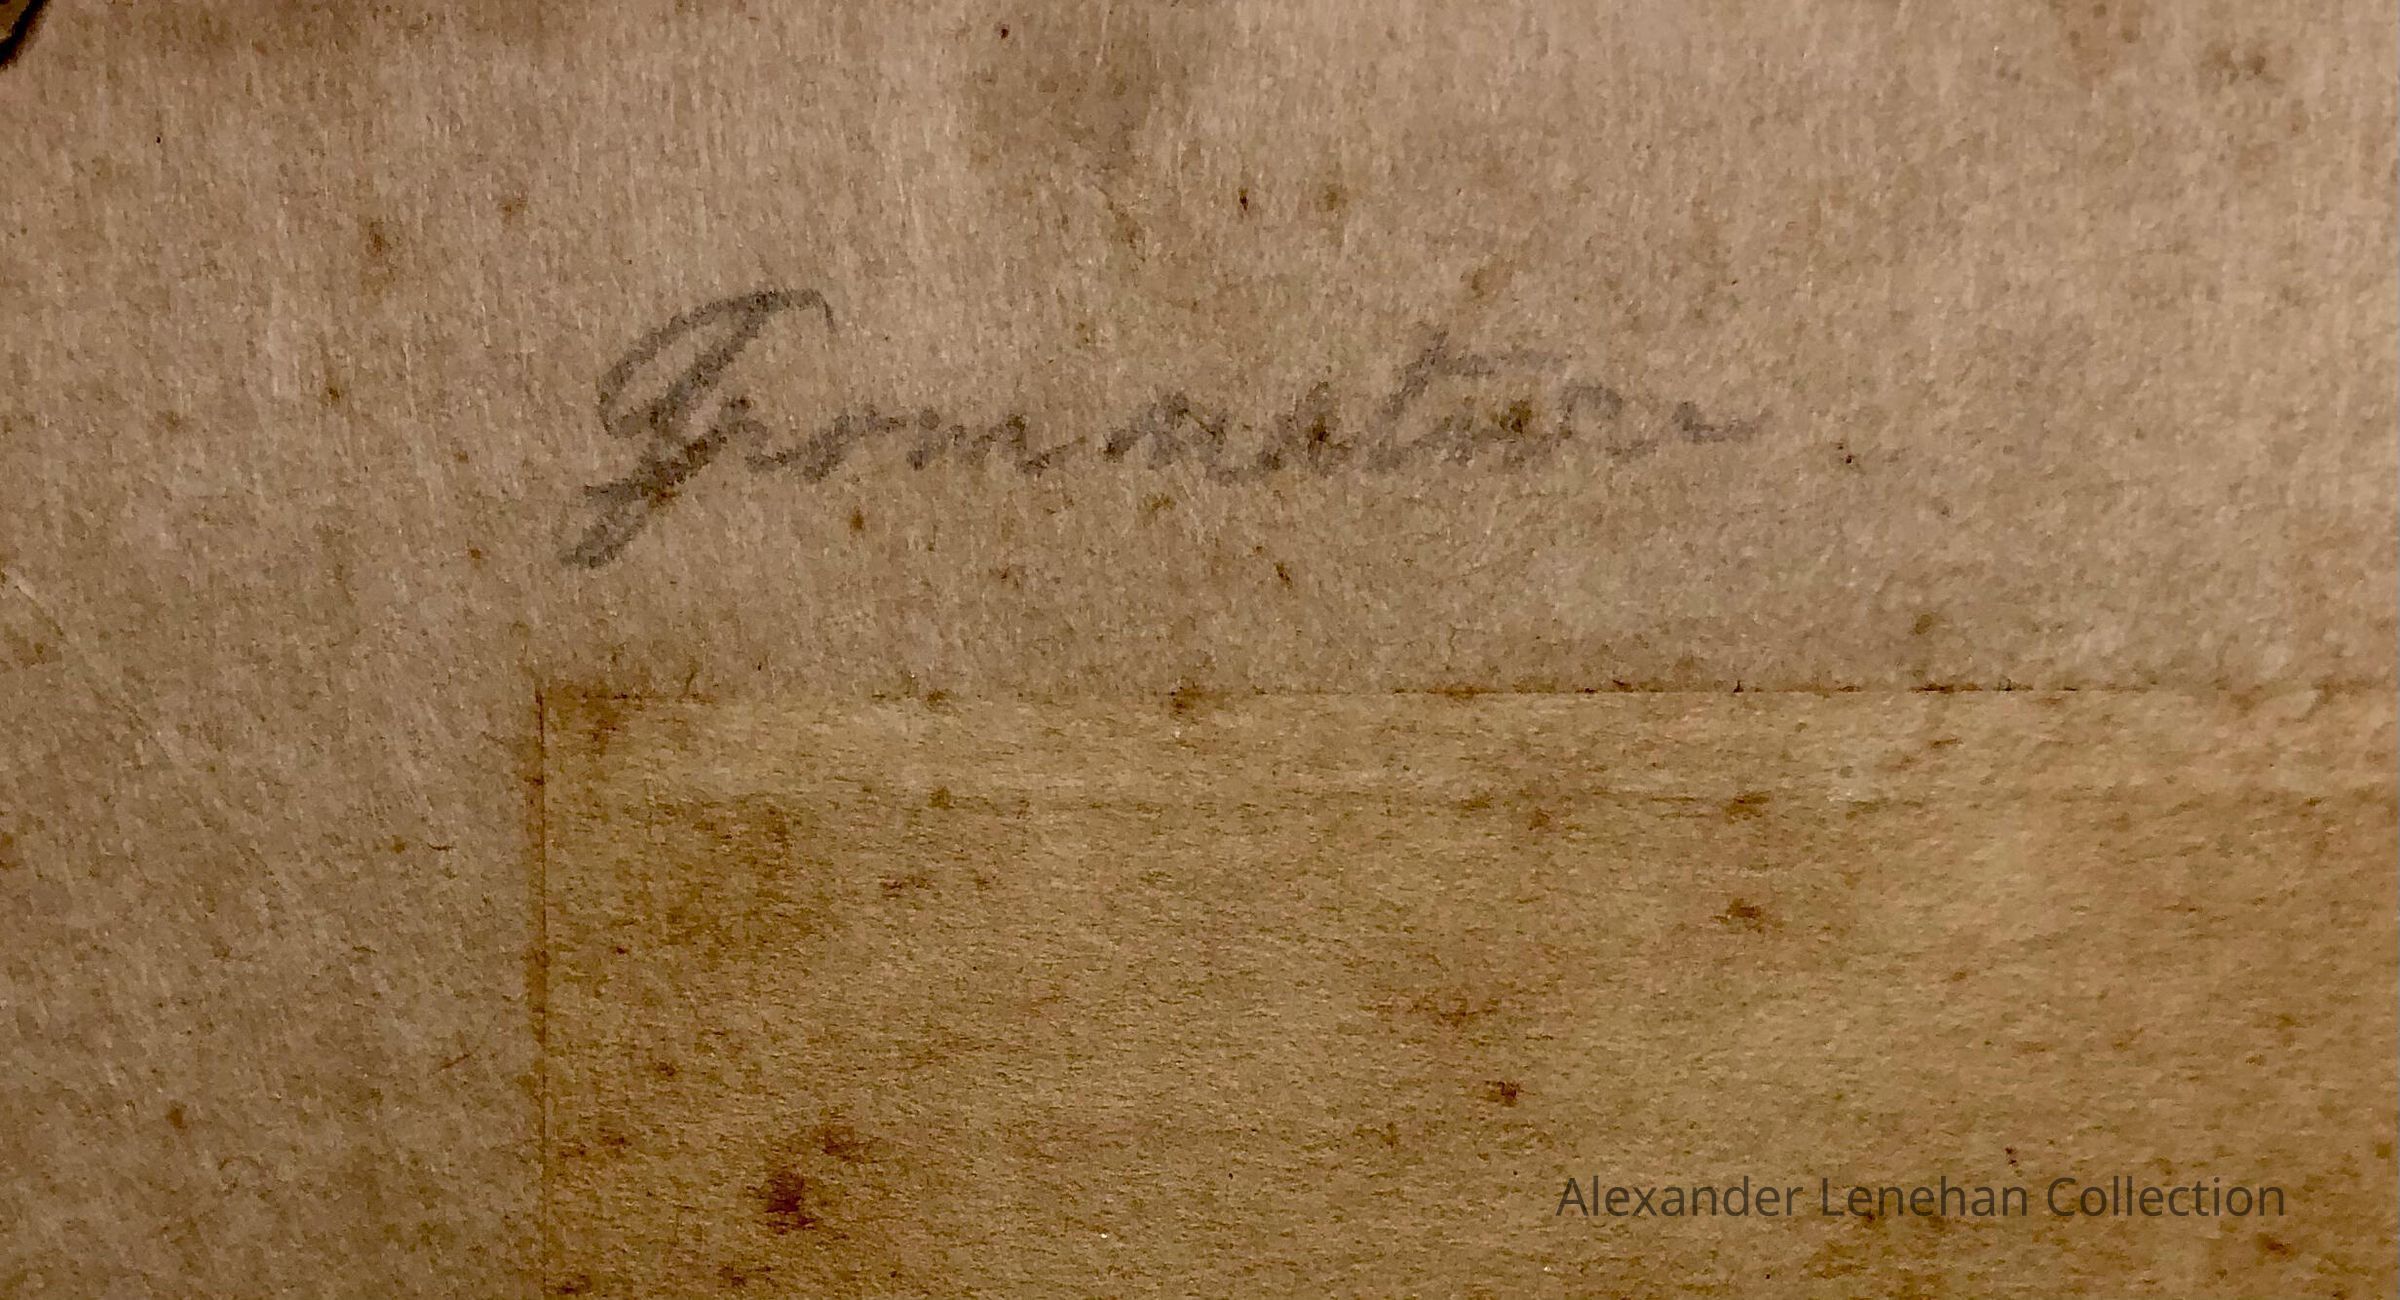 From nature
Alexander Lenehan Collection